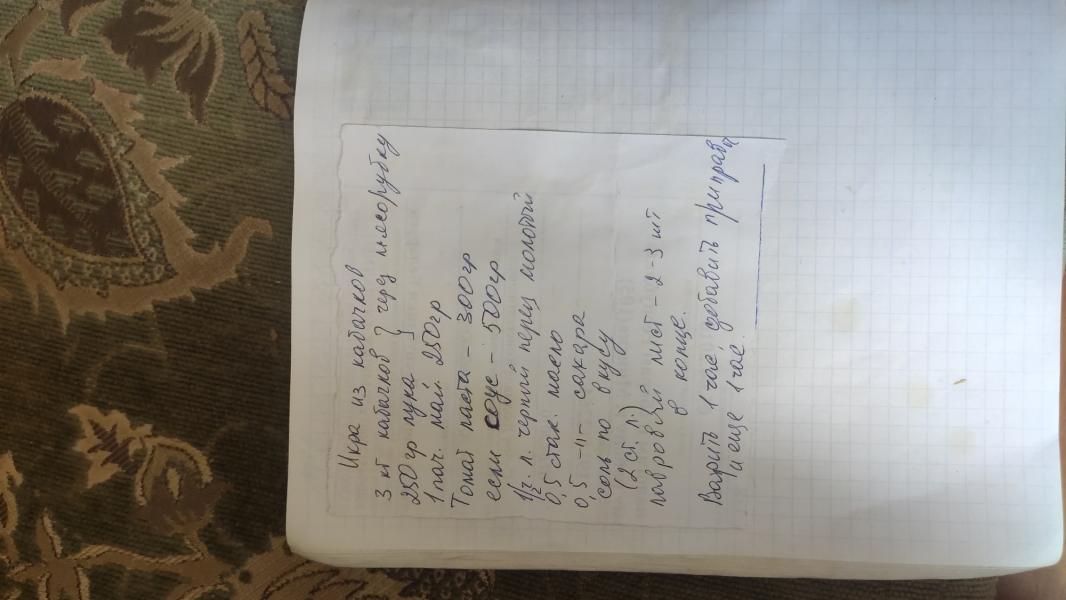 Икра из кабачков
3 кг кабачков } чер. мясорубку
250 гр лука
1 пач. май 250 гр
Томат паста - 300 гр
если соус - 500 гр
1/2 ч. л. черный перец молотый
0,5 стак. масло
0,5 -"- сахара
соль по вкусу
(2 ст. л.)
лавровый лист - 2-3 шт
в конце.
Варить 1 час, добавить приправы
и еще 1 час.